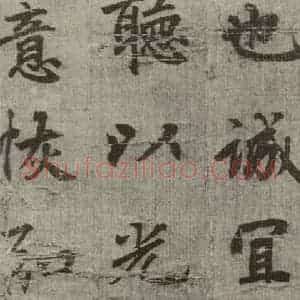 也誠宜
聽以光
意恢弘
shufaziliao.com